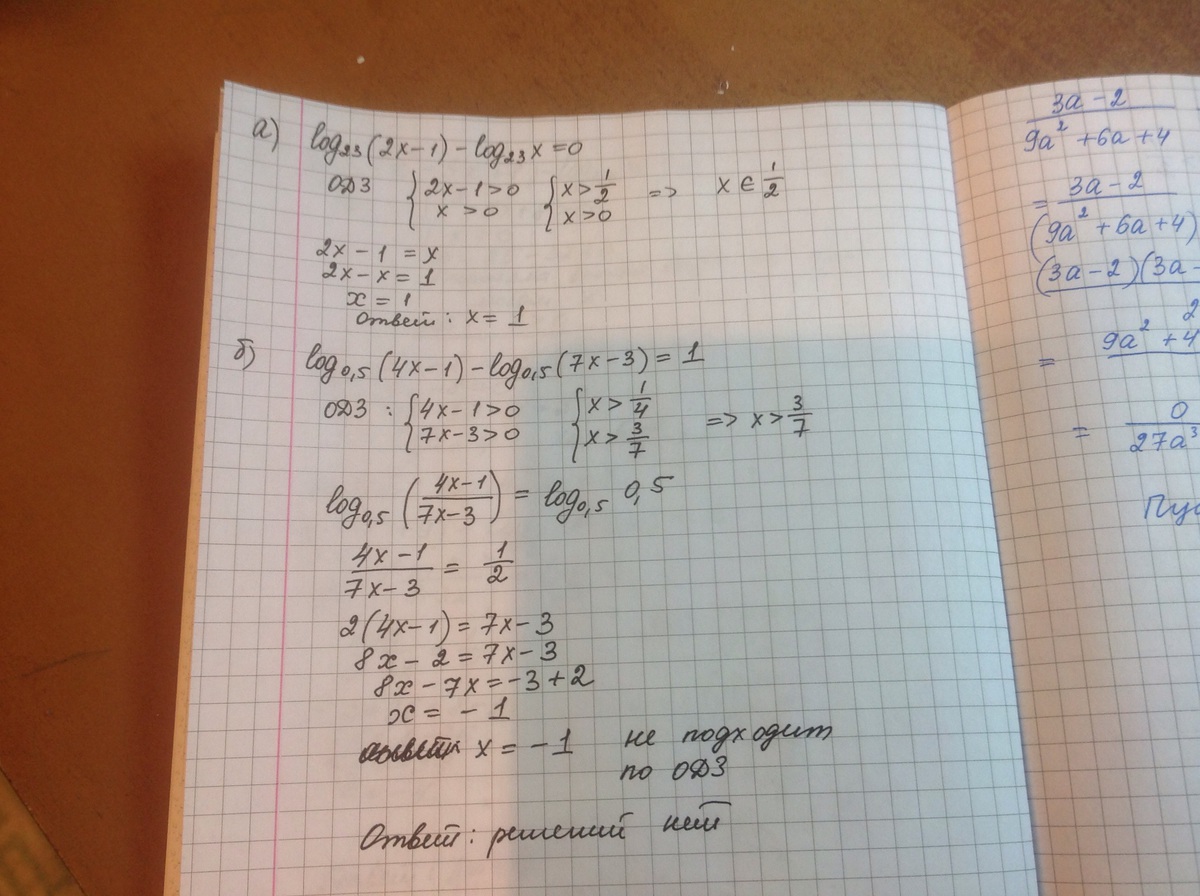 а) log₂₃(2x-1) - log₂₃x = 0
ОДЗ { 2x-1>0 { x>1/2 => x ∈ 1/2
x >0 x>0
2x - 1 = x
2x - x = 1
x = 1
Ответ: x = 1
б) log₀,₅(4x-1) - log₀,₅(7x-3) = 1
ОДЗ : { 4x-1>0 { x>1/4 => x>3/7
7x-3>0 x>3/7
log₀,₅((4x-1)/(7x-3)) = log₀,₅ 0,5
(4x-1)/(7x-3) = 1/2
2(4x-1) = 7x-3
8x - 2 = 7x-3
8x - 7x = -3+2
x = -1
x = -1 не подходит
по ОДЗ
Ответ: решений нет
3a-2
9a² +6a+4
= 3a-2
(9a² +6a+4)
(3a-2)(3a-
2
= 9a² +4
= 0
27a³
Пус